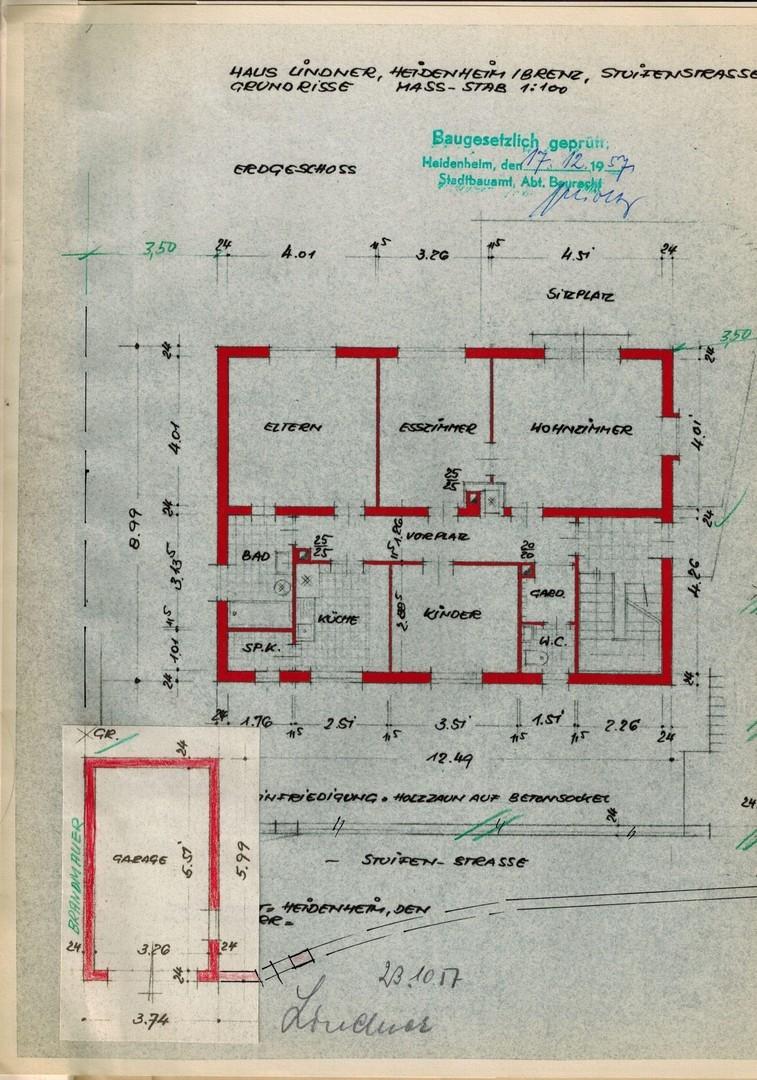 HAUS LINDNER, HEIDENHEIM/BRENZ, STUIFENSTRASSE
GRUNDRISSE MASS-STAB 1:100
Baugesetzlich geprüft:
Heidenheim, den 17. 12. 1957
Stadtbauamt, Abt. Baurecht
ERDGESCHOSS
3,50 24 4.01 11⁵ 3.26 11⁵ 4.51 24
SITZPLATZ
3,50
24 24
ELTERN ESSZIMMER WOHNZIMMER
4.01 4.01
8.99
24 24
VORPLATZ
1.26
25/25
20/20
BAD
11⁵
3.13⁵ 4.26
GARD.
KÜCHE 2.88⁵ KINDER
11⁵
SP.K. W.C.
1.01
24 24
24 1.76 11⁵ 2.51 11⁵ 3.51 11⁵ 1.51 11⁵ 2.26 24
12.49
GR.
24
INFRIEDIGUNG = HOLZZAUN AUF BETONSOCKEL
24
24
BRANDMAUER
GARAGE 5.51 5.99
– STUIFEN-STRASSE
HEIDENHEIM, DEN
24 3.26 24
24
23.10.57
3.74
Lindner